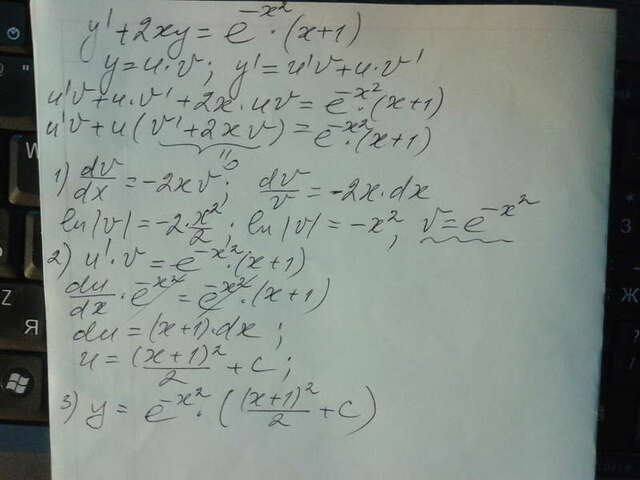 y' + 2xy = e^{-x^2} · (x+1)
y = u·v; y' = u'v + u·v'
u'v + u·v' + 2x·uv = e^{-x^2}·(x+1)
u'v + u(v' + 2xv) = e^{-x^2}·(x+1)
= 0
1) dv/dx = -2xv; dv/v = -2x·dx
ln|v| = -2·x^2/2; ln|v| = -x^2, v = e^{-x^2}
2) u'·v = e^{-x^2}·(x+1)
du/dx · e^{-x^2} = e^{-x^2}·(x+1)
du = (x+1)·dx;
u = (x+1)^2/2 + c;
3) y = e^{-x^2}·((x+1)^2/2 + c)
W
Z
Я
Ж